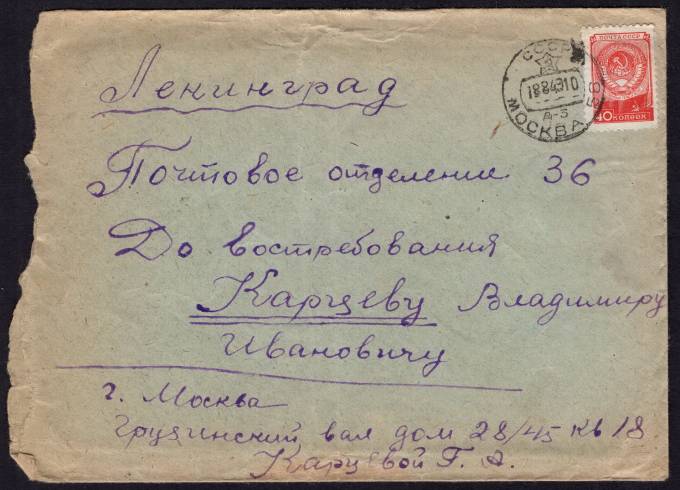 Ленинград
Почтовое отделение 36
До востребования
Карцеву Владимиру
Ивановичу
г. Москва
Грузинский вал дом 28/45 кв 18
Карцевой Г. А.
СССР
МОСКВА
ПОЧТА СССР
40 КОПЕЕК